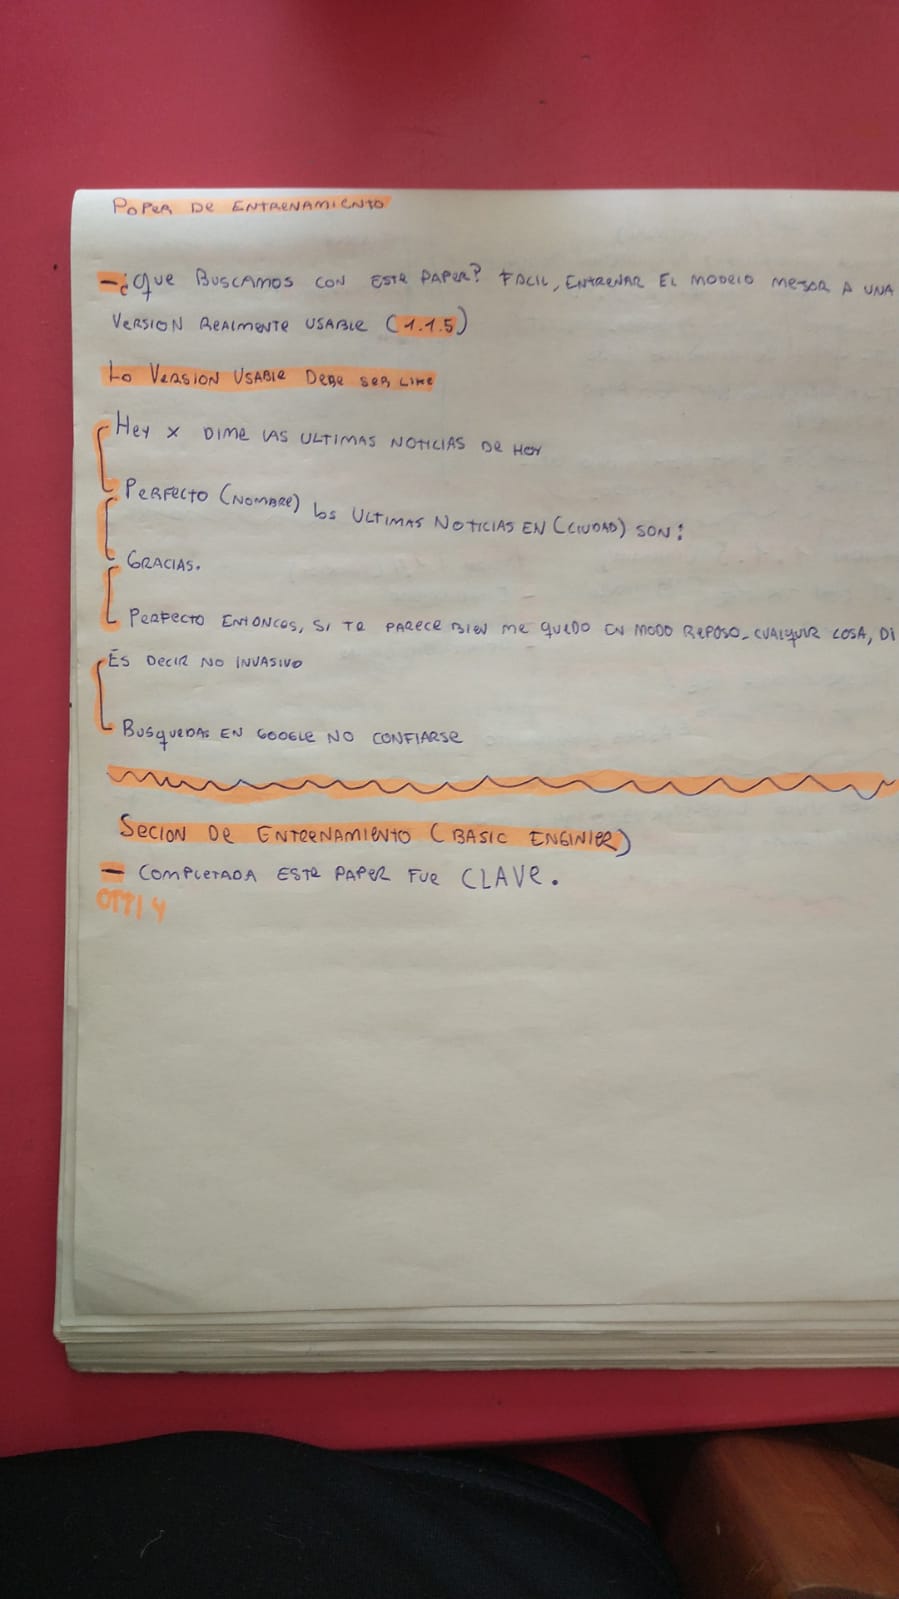 PAPER DE ENTRENAMIENTO
- ¿QUE BUSCAMOS CON ESTE PAPER? FACIL, ENTRENAR EL MODELO MEJOR A UNA
VERSION REALMENTE USABLE (1.1.5)
LA VERSION USABLE DEBE SER LIKE
HEY X DIME LAS ULTIMAS NOTICIAS DE HOY
PERFECTO (NOMBRE) LAS ULTIMAS NOTICIAS EN (CIUDAD) SON:
GRACIAS.
PERFECTO ENTONCES, SI TE PARECE BIEN ME QUEDO EN MODO REPOSO, CUALQUIR COSA, DI
ES DECIR NO INVASIVO
BUSQUEDAS EN GOOGLE NO CONFIARSE
SECION DE ENTRENAMIENTO (BASIC ENGINIER)
- COMPLETADA ESTE PAPER FUE CLAVE.